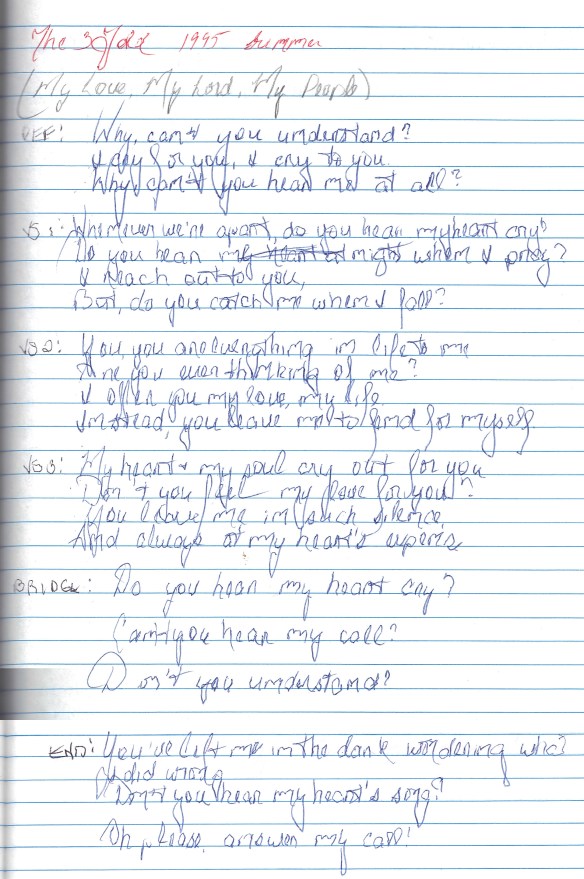 The 3 1995 Summer
(My Love, My Lord, My People)
REF: Why, can't you understand?
I cry for you, I cry to you.
Why can't you hear me at all?
VS 1: Whenever we're apart, do you hear my heart cry?
Do you hear me night when I pray?
I reach out to you,
But, do you catch me when I fall?
VS 2: You, you are everything in life to me
Are you ever thinking of me?
I offer you my love, my life
Instead, you leave me to fend for myself.
VS 3: My heart & my soul cry out for you
Don't you feel my love for you?
You leave me in such silence,
And always at my heart's expense
BRIDGE: Do you hear my heart cry?
Can't you hear my call?
Don't you understand?
END: You've left me in the dark wondering what
I did wrong
Don't you hear my heart's song?
Oh please, answer my call!